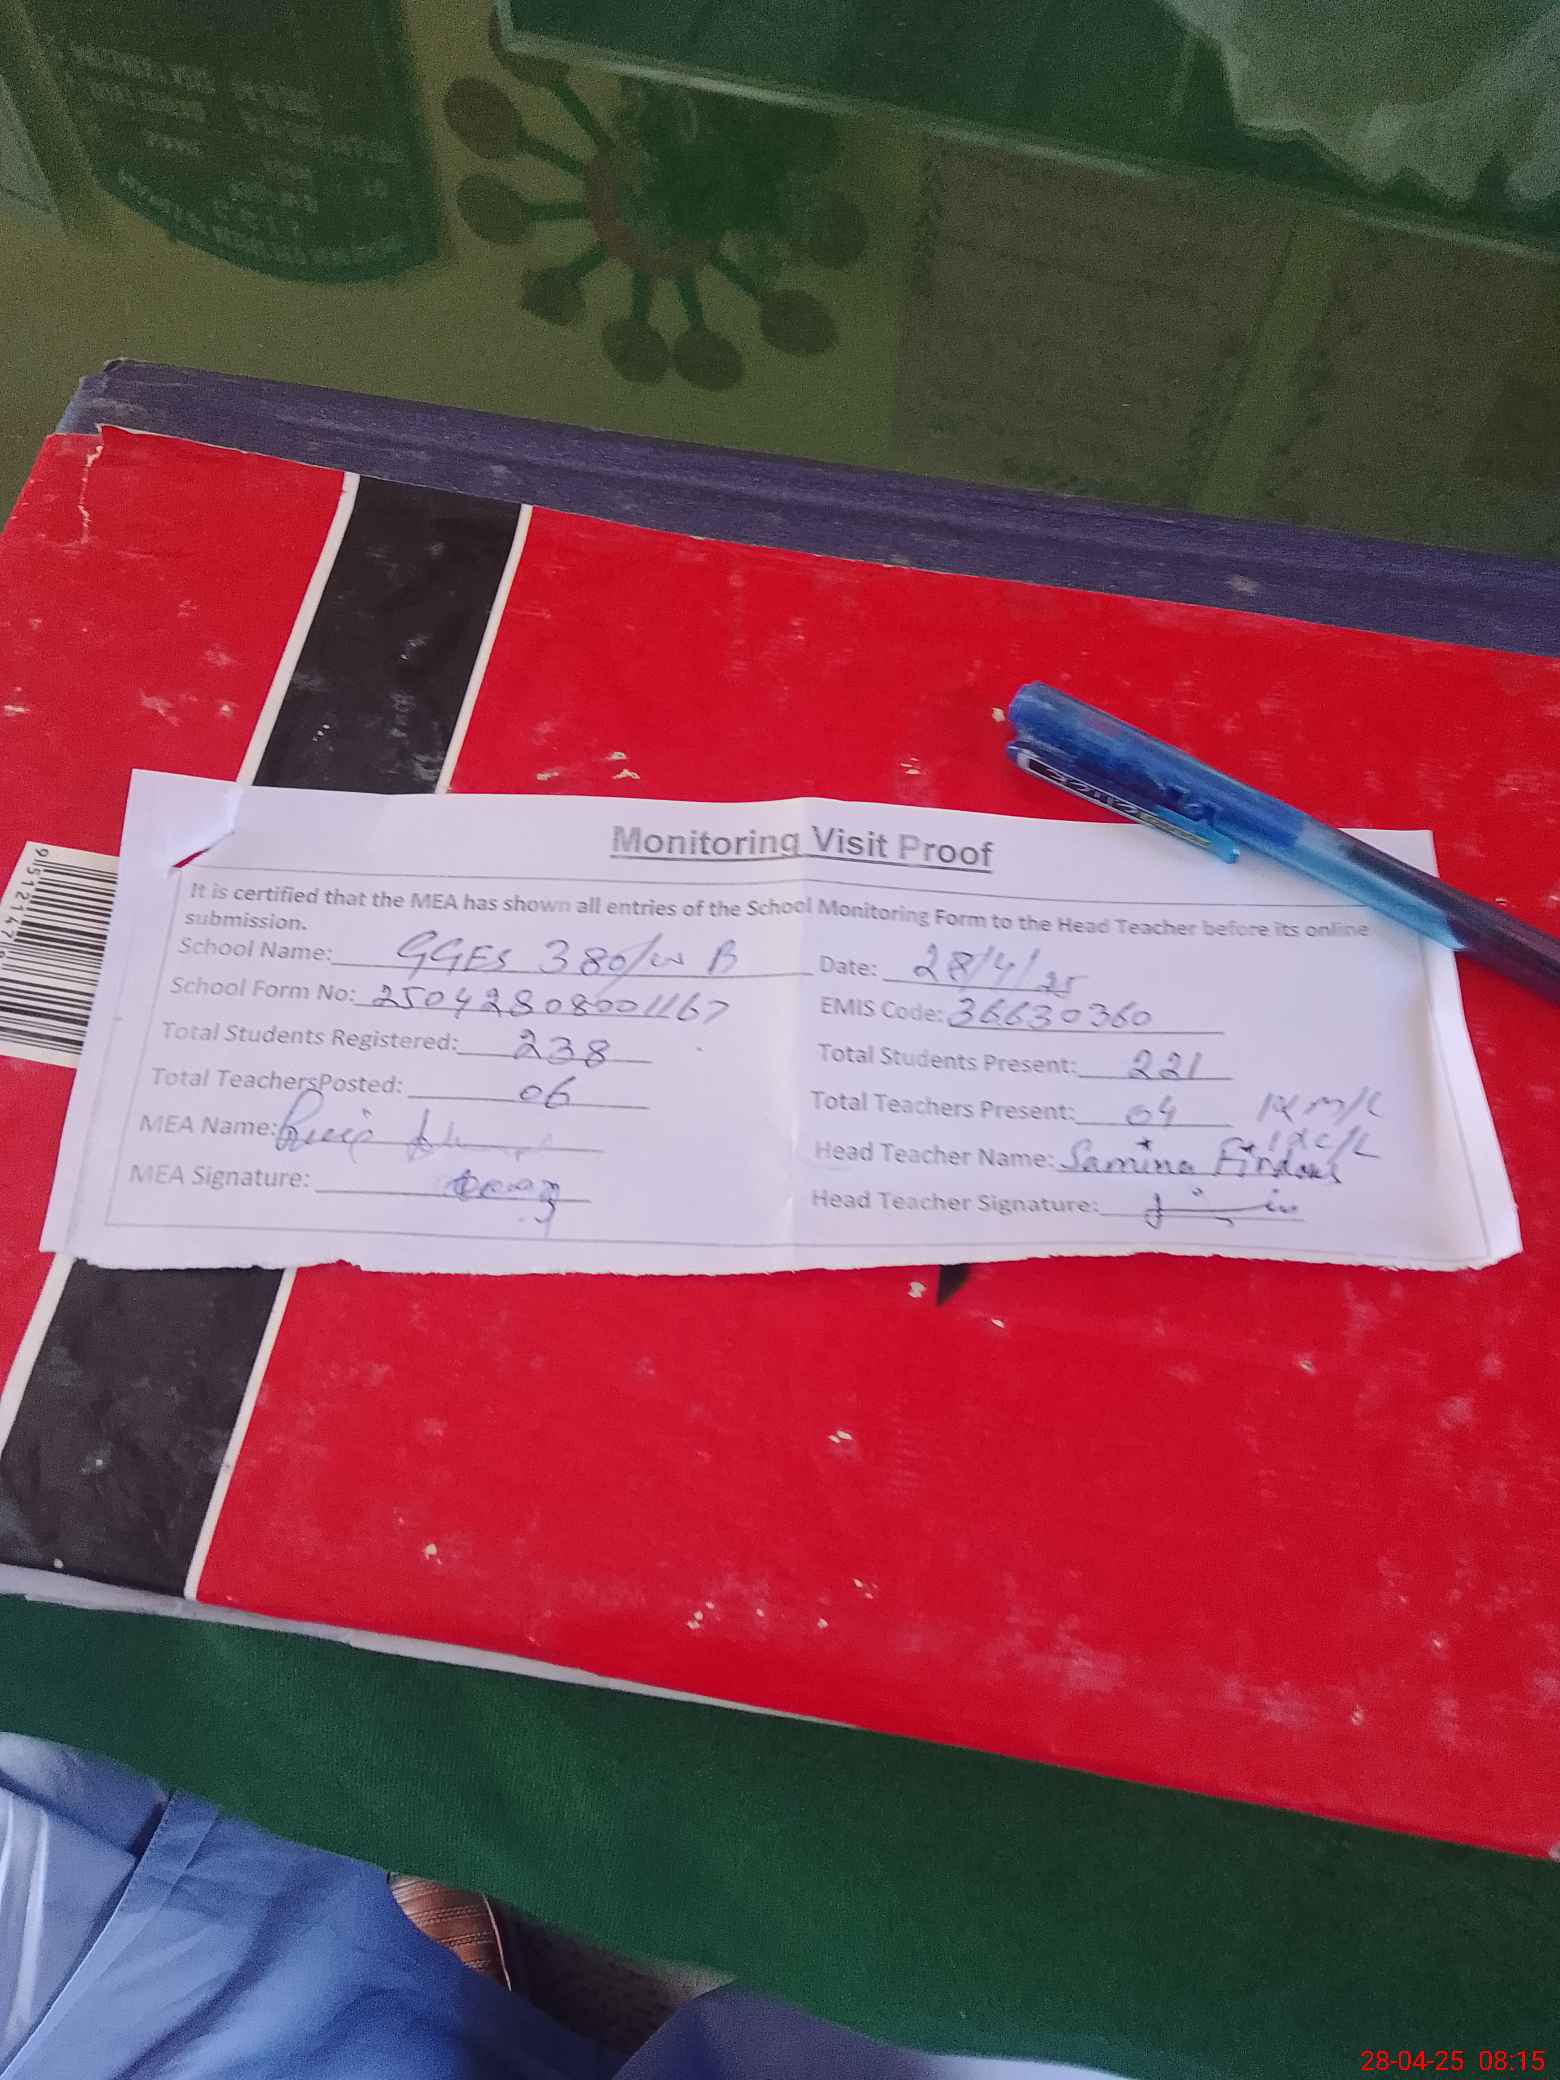 Monitoring Visit Proof
It is certified that the MEA has shown all entries of the School Monitoring Form to the Head Teacher before its online
submission.
School Name: GGES 380/W B Date: 28/4/25
School Form No: 25042808001167 EMIS Code: 36630360
Total Students Registered: 238 Total Students Present: 221
Total TeachersPosted: 06 Total Teachers Present: 04
MEA Name: Head Teacher Name: Samina Firdous
MEA Signature: Head Teacher Signature:
28-04-25 08:15